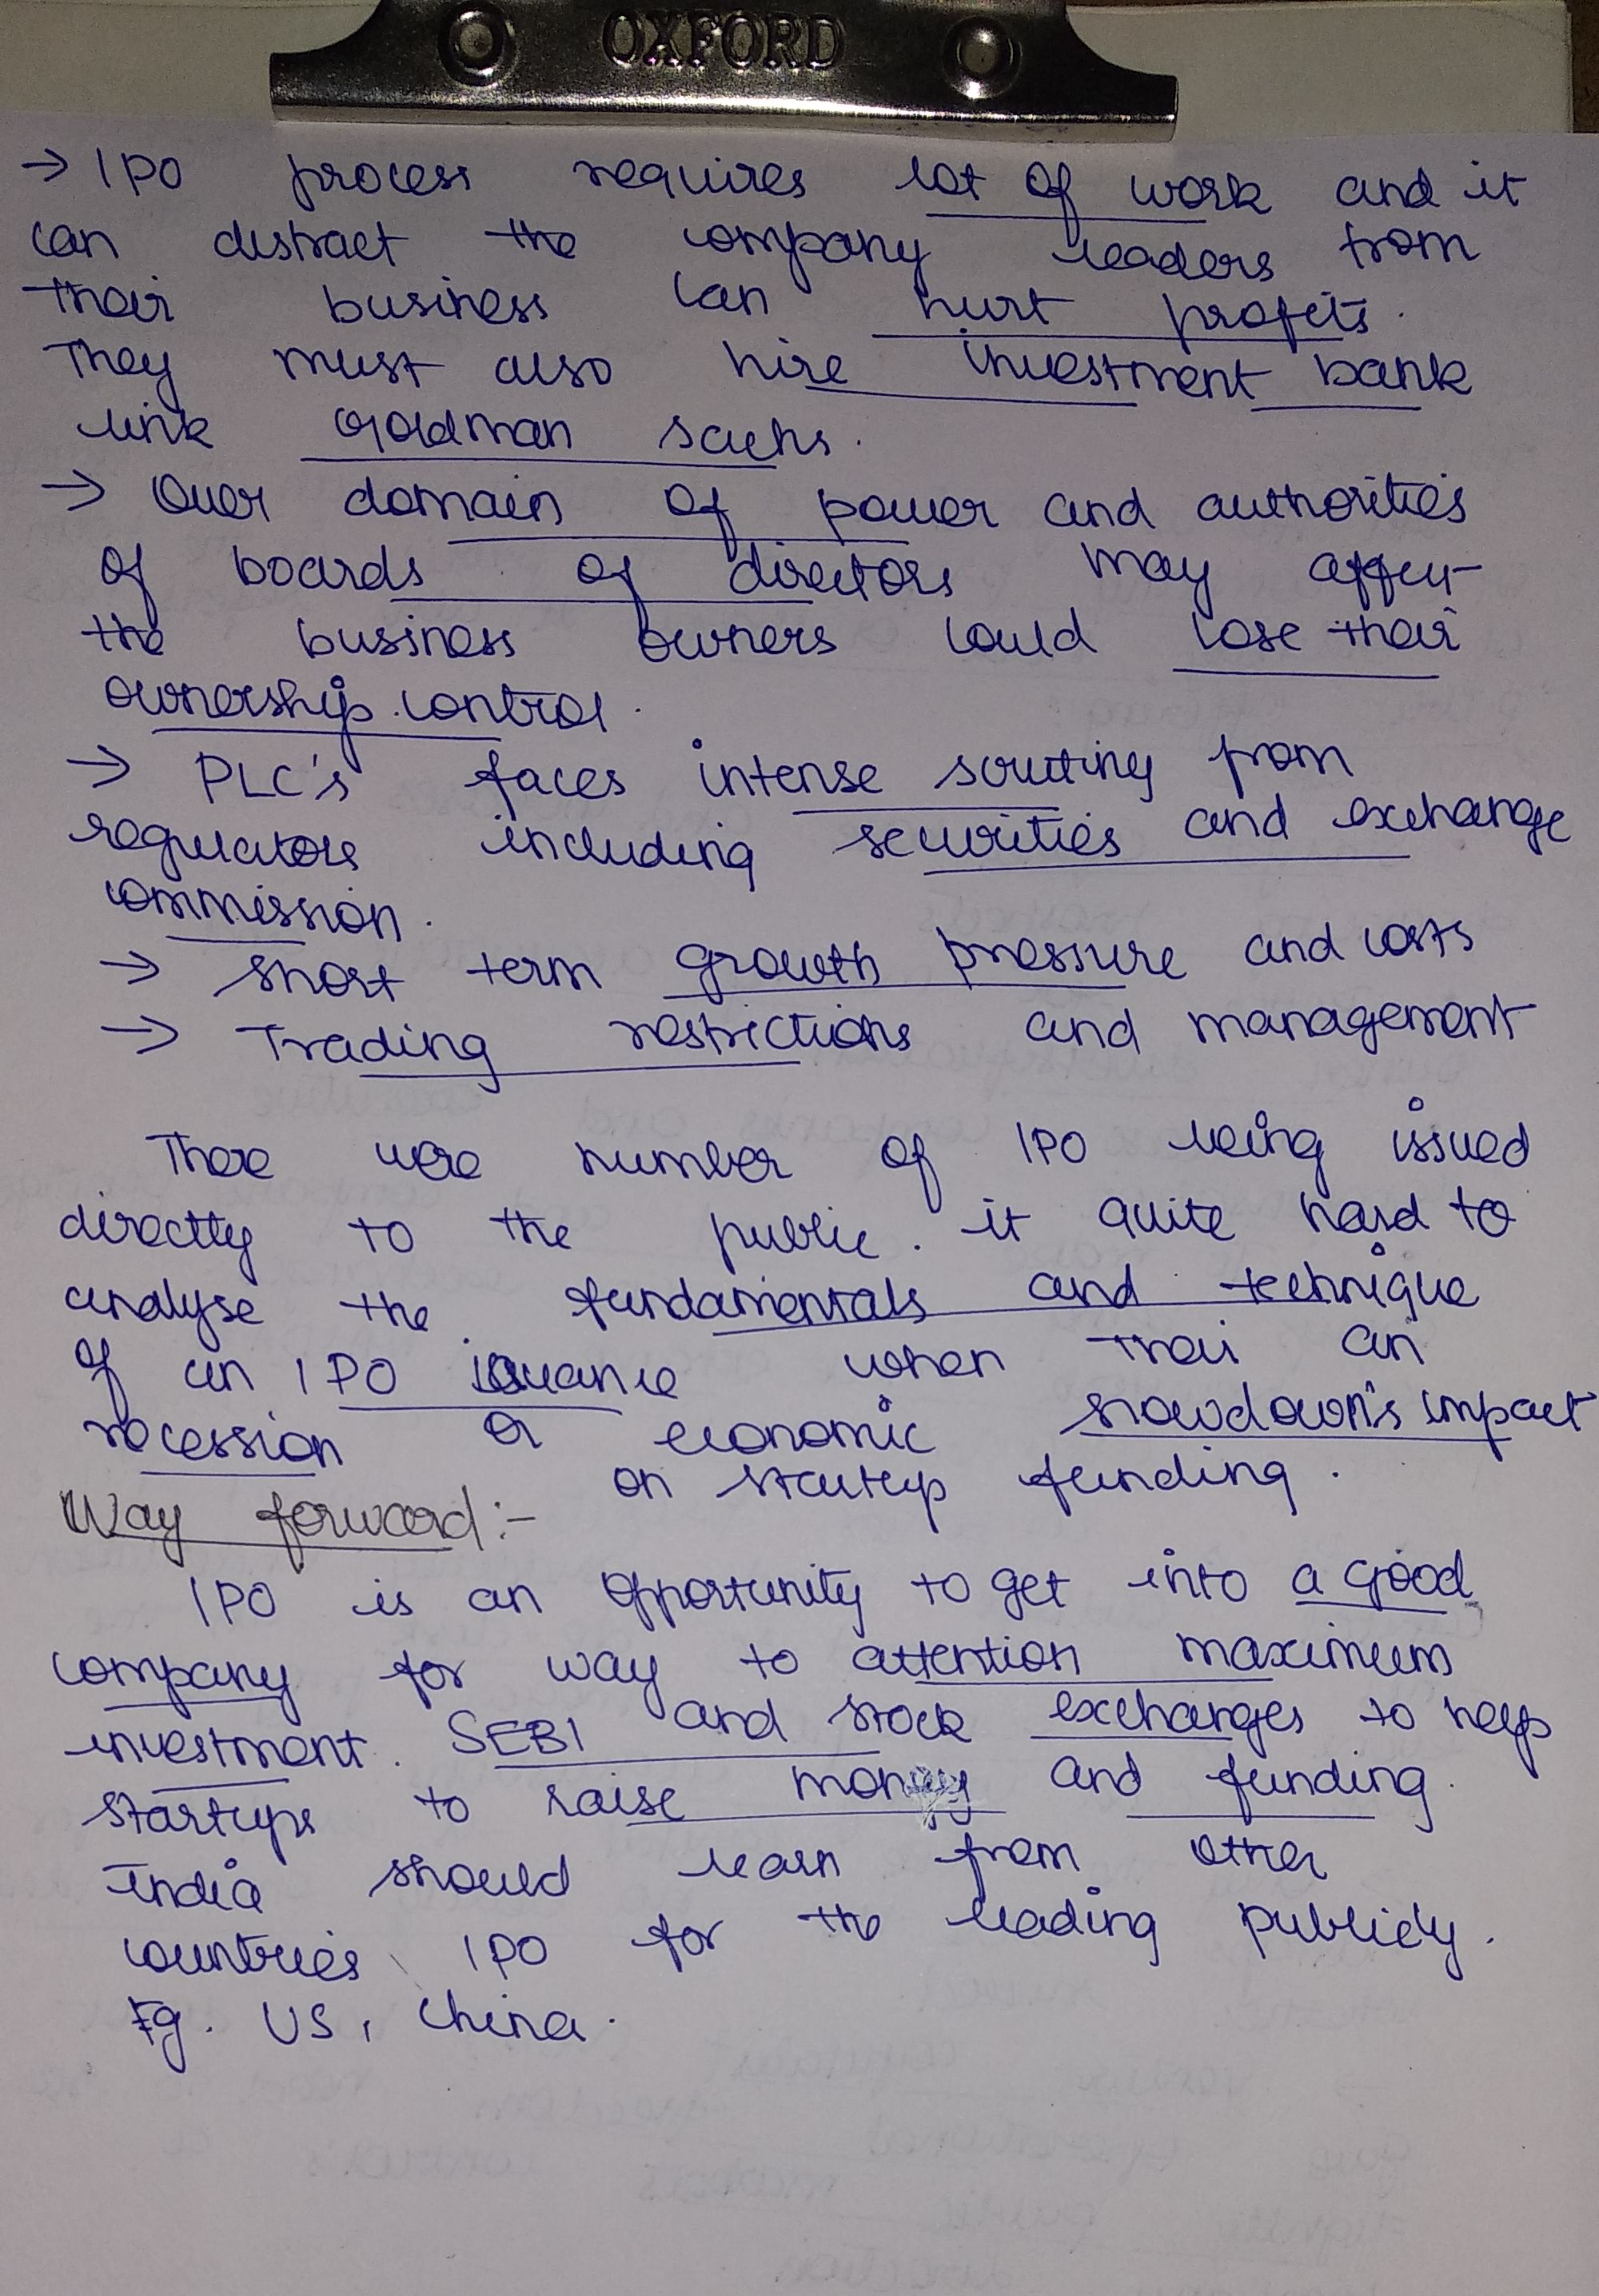 OXFORD
→ IPO process requires lot of work and it
can distract the company leaders from
their business can hurt profits.
They must also hire investment bank
link Goldman sachs.
→ Over domain of power and authorities
of boards of directors may affect
the business owners could lose their
ownership control.
→ PLC's faces intense scrutiny from
regulators including securities and exchange
commission.
→ short term growth pressure and costs
→ Trading restrictions and management
There were number of IPO being issued
directly to the public. it quite hard to
analyse the fundamentals and technique
of an IPO issuance when their an
recession or economic slowdown's impact
on startup funding.
Way forward:-
IPO is an opportunity to get into a good
company for way to attention maximum
investment. SEBI and stock exchanges to help
startups to raise money and funding.
India should learn from other
countries IPO for the leading publicly.
Eg. US, China.